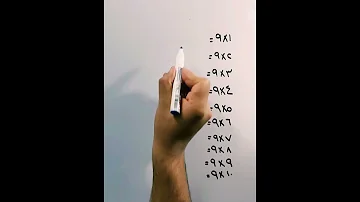 ١×٩=
٢×٩=
٣×٩=
٤×٩=
٥×٩=
٦×٩=
٧×٩=
٨×٩=
٩×٩=
١٠×٩=